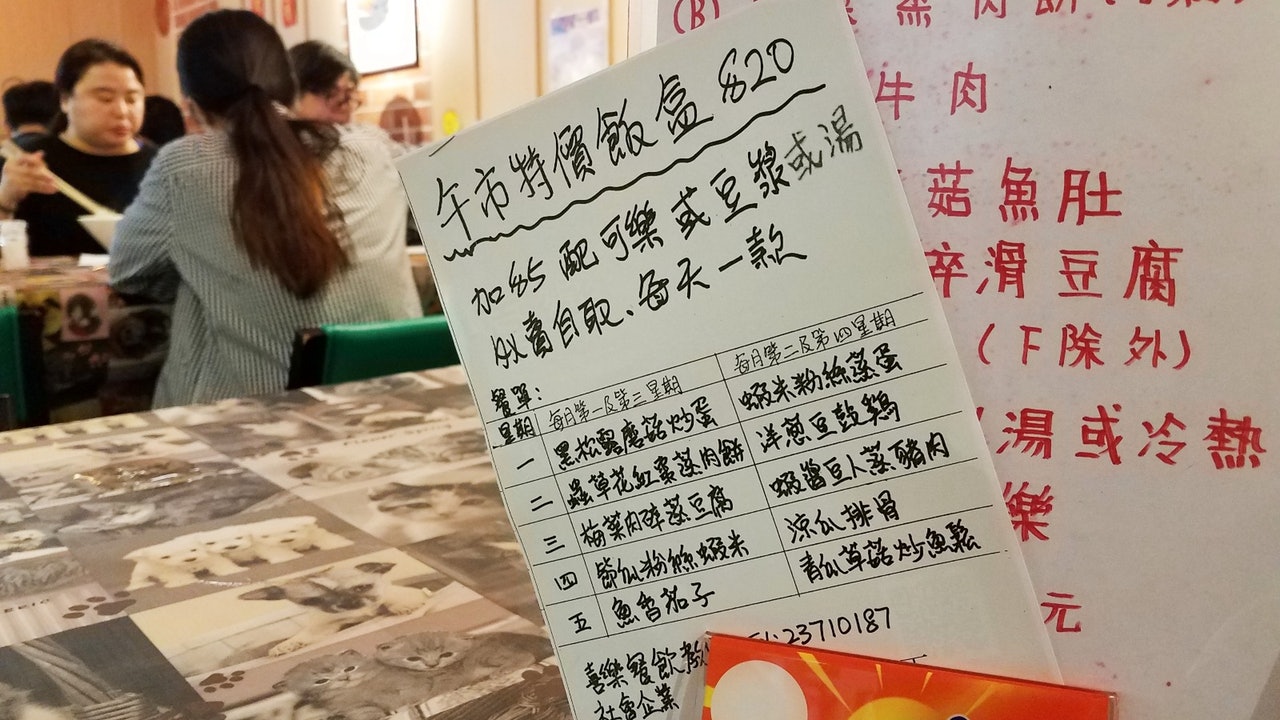 午市特價飯盒 $20
加$5配可樂或豆漿或湯
外賣自取、每天一款
餐單:
星期 每月第一及第三星期 每月第二及第四星期
一 黑松露磨菇炒蛋 蝦米粉絲蒸蛋
二 蟲草花紅棗蒸肉餅 洋葱豆豉鷄
三 梅菜肉碎蒸豆腐 蝦醬豆人蒸豬肉
四 節瓜粉絲蝦米 涼瓜排骨
五 魚香茄子 青瓜草菇炒魚鬆
喜樂餐飲 :23710187
社會企業
(B) 蒸肉餅
牛肉
菇魚肚
碎滑豆腐
(下除外)
湯或冷熱
樂
元